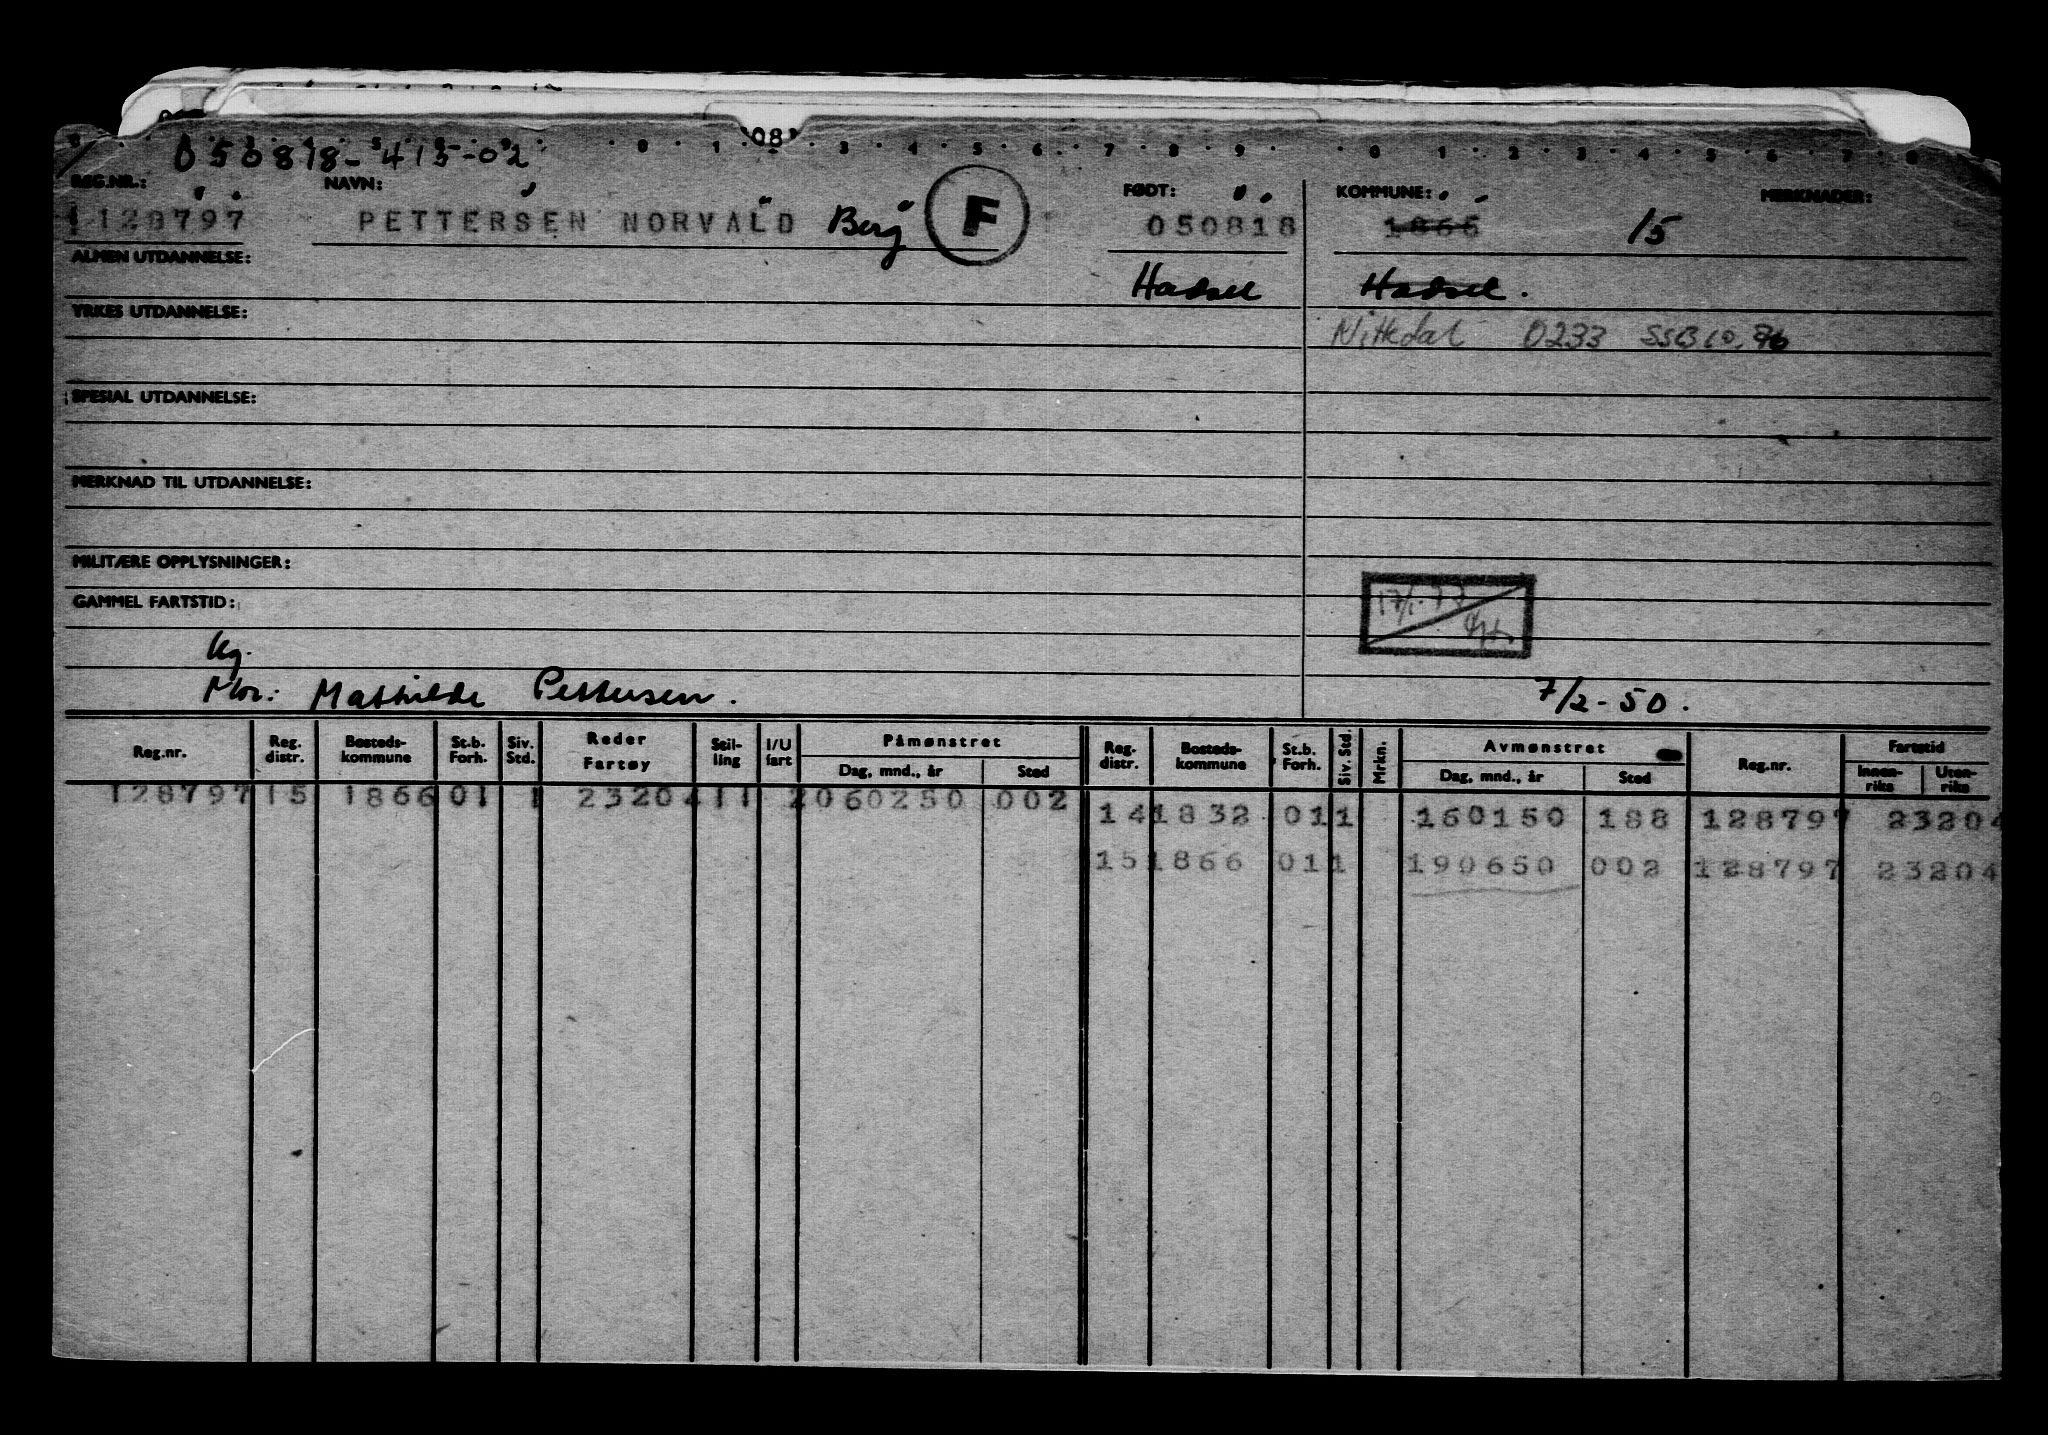 08
050818-415-02
0 1 3 4 5 6 7 8 9 0 1 2 3 4 5 6 7 8
REG.NR.: NAVN: FØDT: KOMMUNE: MERKNADER:
128797 PETTERSEN NORVALD Berg F 050818 1865 15
ALMEN UTDANNELSE: Hadsel Hadsel.
YRKES UTDANNELSE: Nittedal 0233 SSB 10.76
SPESIAL UTDANNELSE:
MERKNAD TIL UTDANNELSE:
MILITÆRE OPPLYSNINGER:
GAMMEL FARTSTID: 17/1.77
Ug.
Mor: Mathilde Pettersen. 7/2-50.
Reg.nr. Reg. distr. Bosteds-kommune St.b. Forh. Siv. Std. Reder Fartøy Stil-ling I/U fart Påmønstret Dag, mnd., år Sted Reg. distr. Bosteds-kommune St.b. Forh. Siv. Std. Mrkn. Avmønstret Dag, mnd., år Sted Reg.nr. Fartstid Innen-riks Uten-riks
128797 15 1866 01 1 23204 11 2 060250 002
14 1832 01 1 160150 188 128797 23204
15 1866 01 1 190650 002 128797 23204